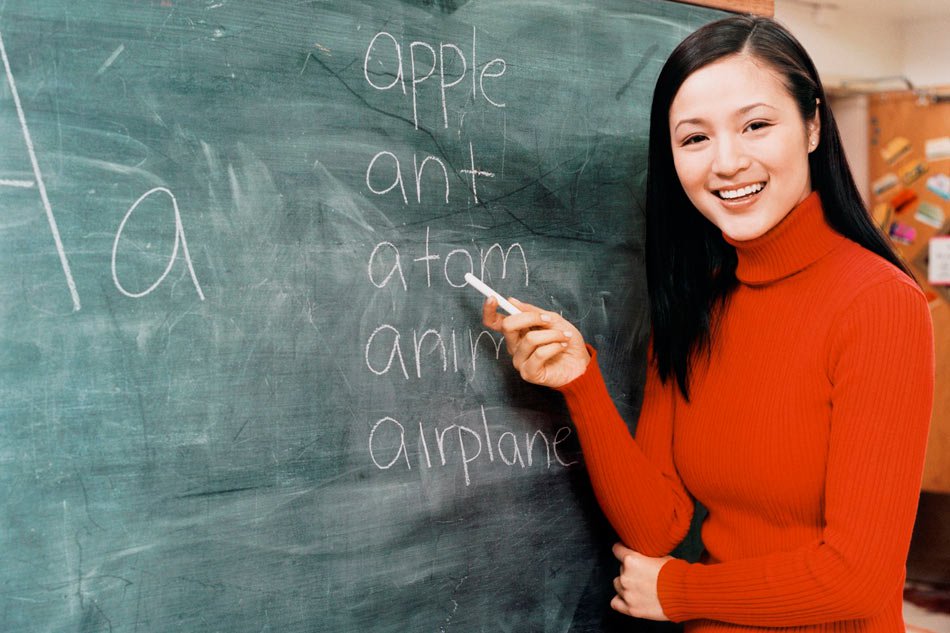 a
apple
ant
atom
anim
airplane